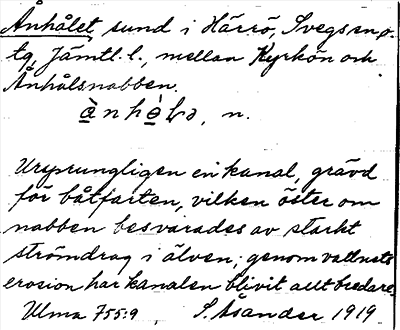 Ånhålet, sund i Härrö, Svegs sn o.
tg, Jämtl. l., mellan Kyrkön och
Ånhålsnabben.
ànhò̱lə, n.
Ursprungligen en kanal, grävd
för båtfarten, vilken öster om
nabben besvärades av starkt
strömdrag i älven; genom vattnets
erosion har kanalen blivit allt bredare.
Ulma 755:9 S. Åsander 1919